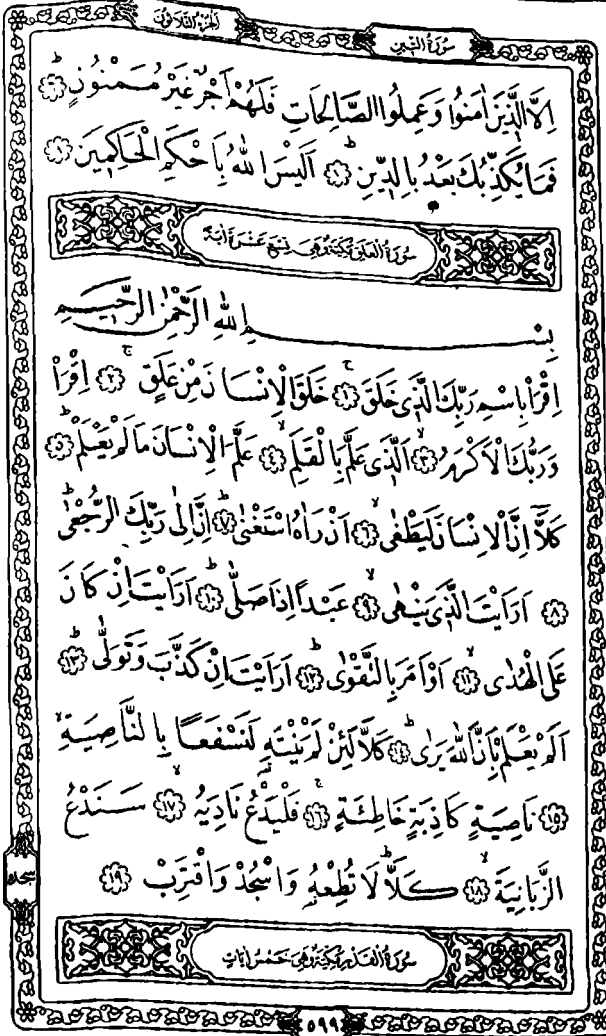 الجزء الثلاثون
سورة التين
اِلَّا الَّذٖينَ اٰمَنُوا وَعَمِلُوا الصَّالِحَاتِ فَلَهُمْ اَجْرٌ غَيْرُ مَمْنُونٍؕ ﴿٦﴾
فَمَا يُكَذِّبُكَ بَعْدُ بِالدّٖينِؕ ﴿٧﴾ اَلَيْسَ اللّٰهُ بِاَحْكَمِ الْحَاكِمٖينَ ﴿٨﴾
سورة العلق مكية وهى تسع عشرة اية
بِسْمِ اللّٰهِ الرَّحْمٰنِ الرَّحٖيمِ
اِقْرَاْ بِاسْمِ رَبِّكَ الَّذٖى خَلَقَۚ ﴿١﴾ خَلَقَ الْاِنْسَانَ مِنْ عَلَقٍۚ ﴿٢﴾ اِقْرَاْ
وَرَبُّكَ الْاَكْرَمُۙ ﴿٣﴾ اَلَّذٖى عَلَّمَ بِالْقَلَمِۙ ﴿٤﴾ عَلَّمَ الْاِنْسَانَ مَا لَمْ يَعْلَمْؕ ﴿٥﴾
كَلَّٓا اِنَّ الْاِنْسَانَ لَيَطْغٰىۙ ﴿٦﴾ اَنْ رَاٰهُ اسْتَغْنٰىؕ ﴿٧﴾ اِنَّ اِلٰى رَبِّكَ الرُّجْعٰىؕ
﴿٨﴾ اَرَاَيْتَ الَّذٖى يَنْهٰىۙ ﴿٩﴾ عَبْدًا اِذَا صَلّٰىؕ ﴿١٠﴾ اَرَاَيْتَ اِنْ كَانَ
عَلَى الْهُدٰىۙ ﴿١١﴾ اَوْ اَمَرَ بِالتَّقْوٰىؕ ﴿١٢﴾ اَرَاَيْتَ اِنْ كَذَّبَ وَتَوَلّٰىؕ ﴿١٣﴾
اَلَمْ يَعْلَمْ بِاَنَّ اللّٰهَ يَرٰىؕ ﴿١٤﴾ كَلَّا لَئِنْ لَمْ يَنْتَهِ لَنَسْفَعًا بِالنَّاصِيَةِۙ
﴿١٥﴾ نَاصِيَةٍ كَاذِبَةٍ خَاطِئَةٍۚ ﴿١٦﴾ فَلْيَدْعُ نَادِيَهُۙ ﴿١٧﴾ سَنَدْعُ
الزَّبَانِيَةَۙ ﴿١٨﴾ كَلَّاؕ لَا تُطِعْهُ وَاسْجُدْ وَاقْتَرِبْ ﴿١٩﴾
سجده
سورة القدر مكية وهى خمس ايات
٥٩٩